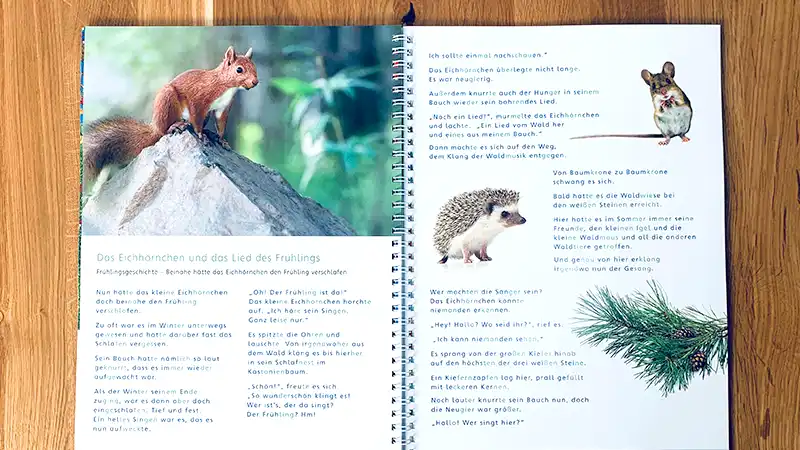 Das Eichhörnchen und das Lied des Frühlings
Frühlingsgeschichte – Beinahe hätte das Eichhörnchen den Frühling verschlafen
Nun hätte das kleine Eichhörnchen
doch beinahe den Frühling
verschlafen.
Zu oft war es im Winter unterwegs
gewesen und hatte darüber fast das
Schlafen vergessen.
Sein Bauch hatte nämlich so laut
geknurrt, dass es immer wieder
aufgewacht war.
Als der Winter seinem Ende
zuging, war es dann aber doch
eingeschlafen. Tief und fest.
Ein helles Singen war es, das es
nun aufweckte.
„Oh! Der Frühling ist da!"
Das kleine Eichhörnchen horchte
auf. „Ich höre sein Singen.
Ganz leise nur."
Es spitzte die Ohren und
lauschte. Von irgendwoher aus
dem Wald klang es bis hierher
in sein Schlafnest im
Kastanienbaum.
„Schön!", freute es sich.
„So wunderschön klingt es!
Wer ist's, der da singt?
Der Frühling? Hm!
Ich sollte einmal nachschauen."
Das Eichhörnchen überlegte nicht lange.
Es war neugierig.
Außerdem knurrte auch der Hunger in seinem
Bauch wieder sein bohrendes Lied.
„Noch ein Lied!", murmelte das Eichhörnchen
und lachte. „Ein Lied vom Wald her
und eines aus meinem Bauch."
Dann machte es sich auf den Weg,
dem Klang der Waldmusik entgegen.
Von Baumkrone zu Baumkrone
schwang es sich.
Bald hatte es die Waldwiese bei
den weißen Steinen erreicht.
Hier hatte es im Sommer immer seine
Freunde, den kleinen Igel und die
kleine Waldmaus und all die anderen
Waldtiere getroffen.
Und genau von hier erklang
irgendwo nun der Gesang.
Wer mochten die Sänger sein?
Das Eichhörnchen konnte
niemanden erkennen.
„Hey! Hallo! Wo seid ihr?", rief es.
„Ich kann niemanden sehen."
Es sprang von der großen Kiefer hinab
auf den höchsten der drei weißen Steine.
Ein Kiefernzapfen lag hier, prall gefüllt
mit leckeren Kernen.
Noch lauter knurrte sein Bauch nun, doch
die Neugier war größer.
„Hallo! Wer singt hier?"